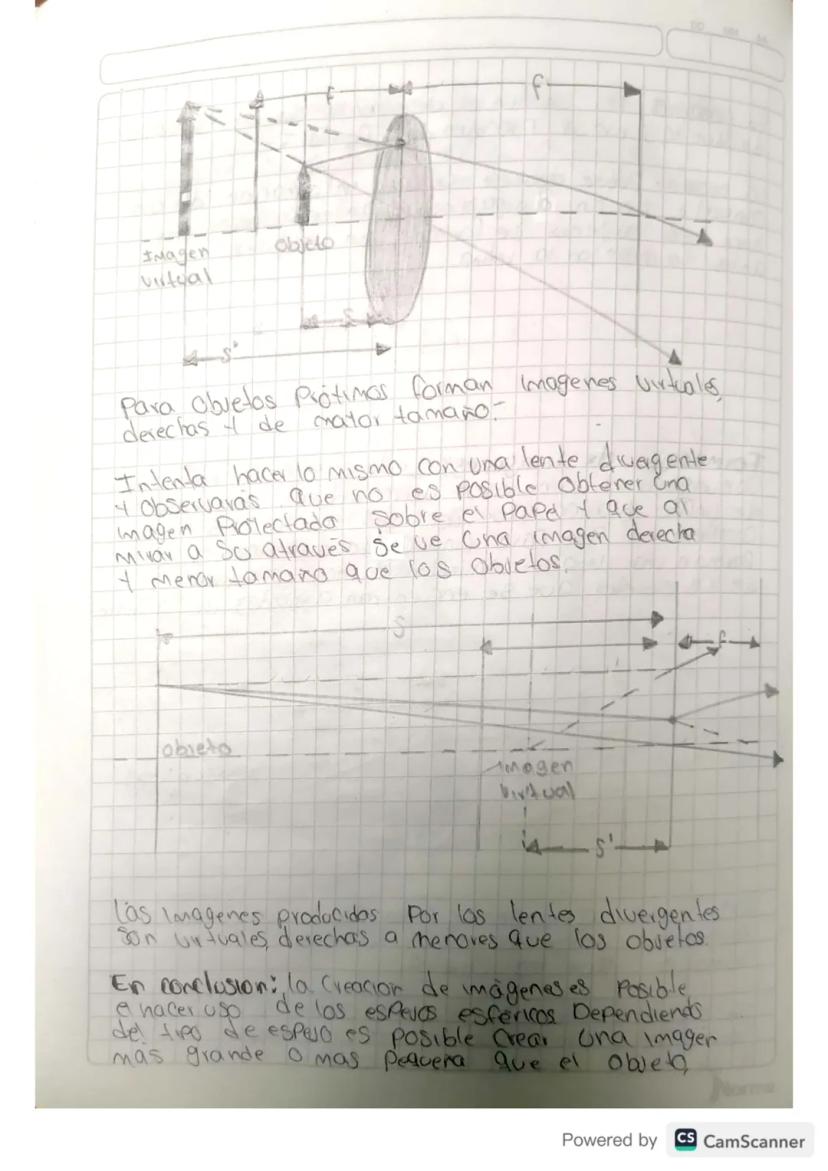 f f
Imagen
virtual
Objeto
S
S'
Para Objetos Prótimos forman Imagenes virtuales,
derechas Y de mator tamaño.
Intenta hacer lo mismo con una lente divergente
Y Observaras que no es posible Obtener una
imagen Prolectado Sobre el Papel Y que al
mirar a su através Se ve una imagen derecha
Y menor tamaño que los Objetos.
S
f
Objeto
imagen
virtual
S'
Las Imagenes producidas Por las lentes divergentes
Son virtuales, derechas a menores que los objetos.
En conclusion: la Creacion de imágenes es Posible
a hacer uso de los espejos esfericos Dependiendo
del tipo de espejo es posible Crear una imagen
mas grande o mas Pequeña que el Objeto
Norma
Powered by CS CamScanner